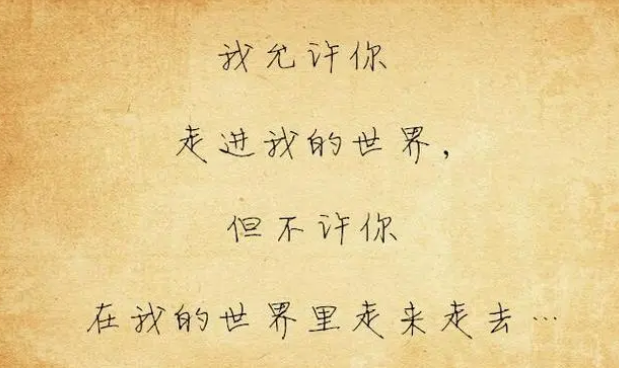 我允许你
走进我的世界，
但不许你
在我的世界里走来走去…